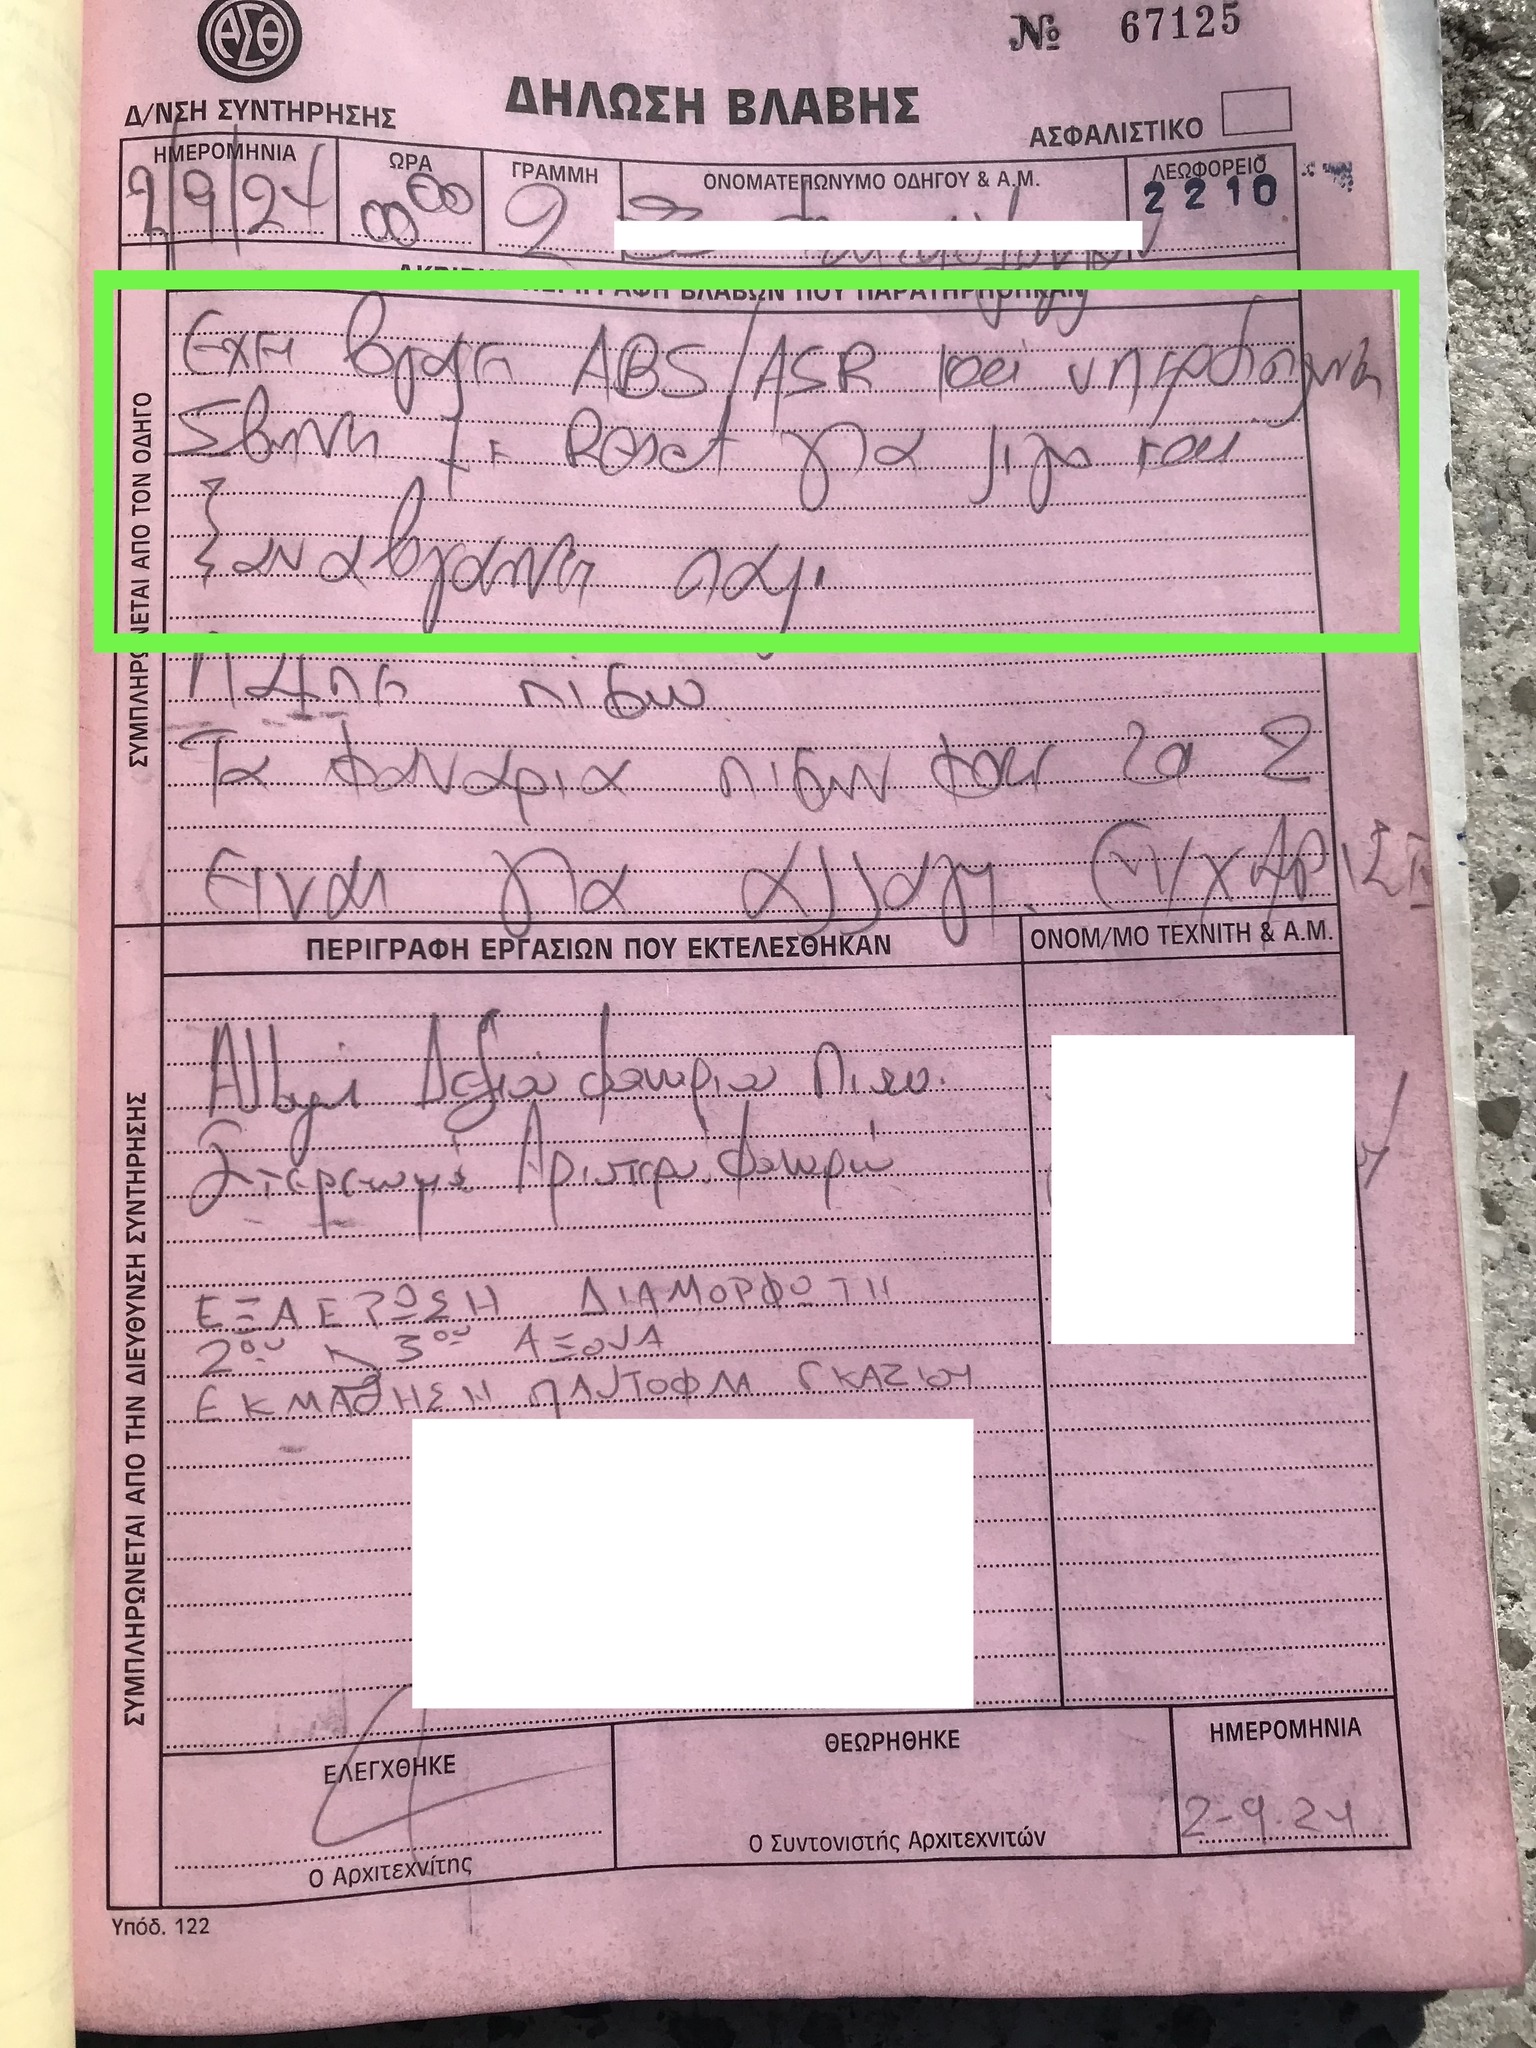 ΑΣΘ
№ 67125
Δ/ΝΣΗ ΣΥΝΤΗΡΗΣΗΣ
ΔΗΛΩΣΗ ΒΛΑΒΗΣ
ΑΣΦΑΛΙΣΤΙΚΟ
ΗΜΕΡΟΜΗΝΙΑ ΩΡΑ ΓΡΑΜΜΗ ΟΝΟΜΑΤΕΠΩΝΥΜΟ ΟΔΗΓΟΥ & Α.Μ. ΛΕΩΦΟΡΕΙΟ
2/9/24 00 00 2 2210
ΠΕΡΙΓΡΑΦΗ ΒΛΑΒΩΝ ΠΟΥ ΠΑΡΑΤΗΡΗΘΗΚΑΝ
ΣΥΜΠΛΗΡΩΝΕΤΑΙ ΑΠΟ ΤΟΝ ΟΔΗΓΟ
Εχει βγαλει ABS/ASR και
Σβηνει με Reset για λιγο και
ξαναβγαινει παλι
πισω
Τα φαναρια πισω και τα 2
Ειναι για αλλαγη. ΕΥΧΑΡΙΣΤΩ
ΠΕΡΙΓΡΑΦΗ ΕΡΓΑΣΙΩΝ ΠΟΥ ΕΚΤΕΛΕΣΘΗΚΑΝ ΟΝΟΜ/ΜΟ ΤΕΧΝΙΤΗ & Α.Μ.
ΣΥΜΠΛΗΡΩΝΕΤΑΙ ΑΠΟ ΤΗΝ ΔΙΕΥΘΥΝΣΗ ΣΥΝΤΗΡΗΣΗΣ
Αλλαγή Δεξιού φαναριού Πισω.
Στερέωμα Αριστερού φαναριού
ΕΞΑΕΡΩΣΗ ΔΙΑΜΟΡΦΩΤΗ
2ου 3ου ΑΞΟΝΑ
ΕΚΜΑΘΗΣΗ ΠΑΝΤΟΦΛΑ ΓΚΑΖΙΟΥ
ΕΛΕΓΧΘΗΚΕ ΘΕΩΡΗΘΗΚΕ ΗΜΕΡΟΜΗΝΙΑ
2-9.24
Ο Αρχιτεχνίτης Ο Συντονιστής Αρχιτεχνιτών
Υπόδ. 122